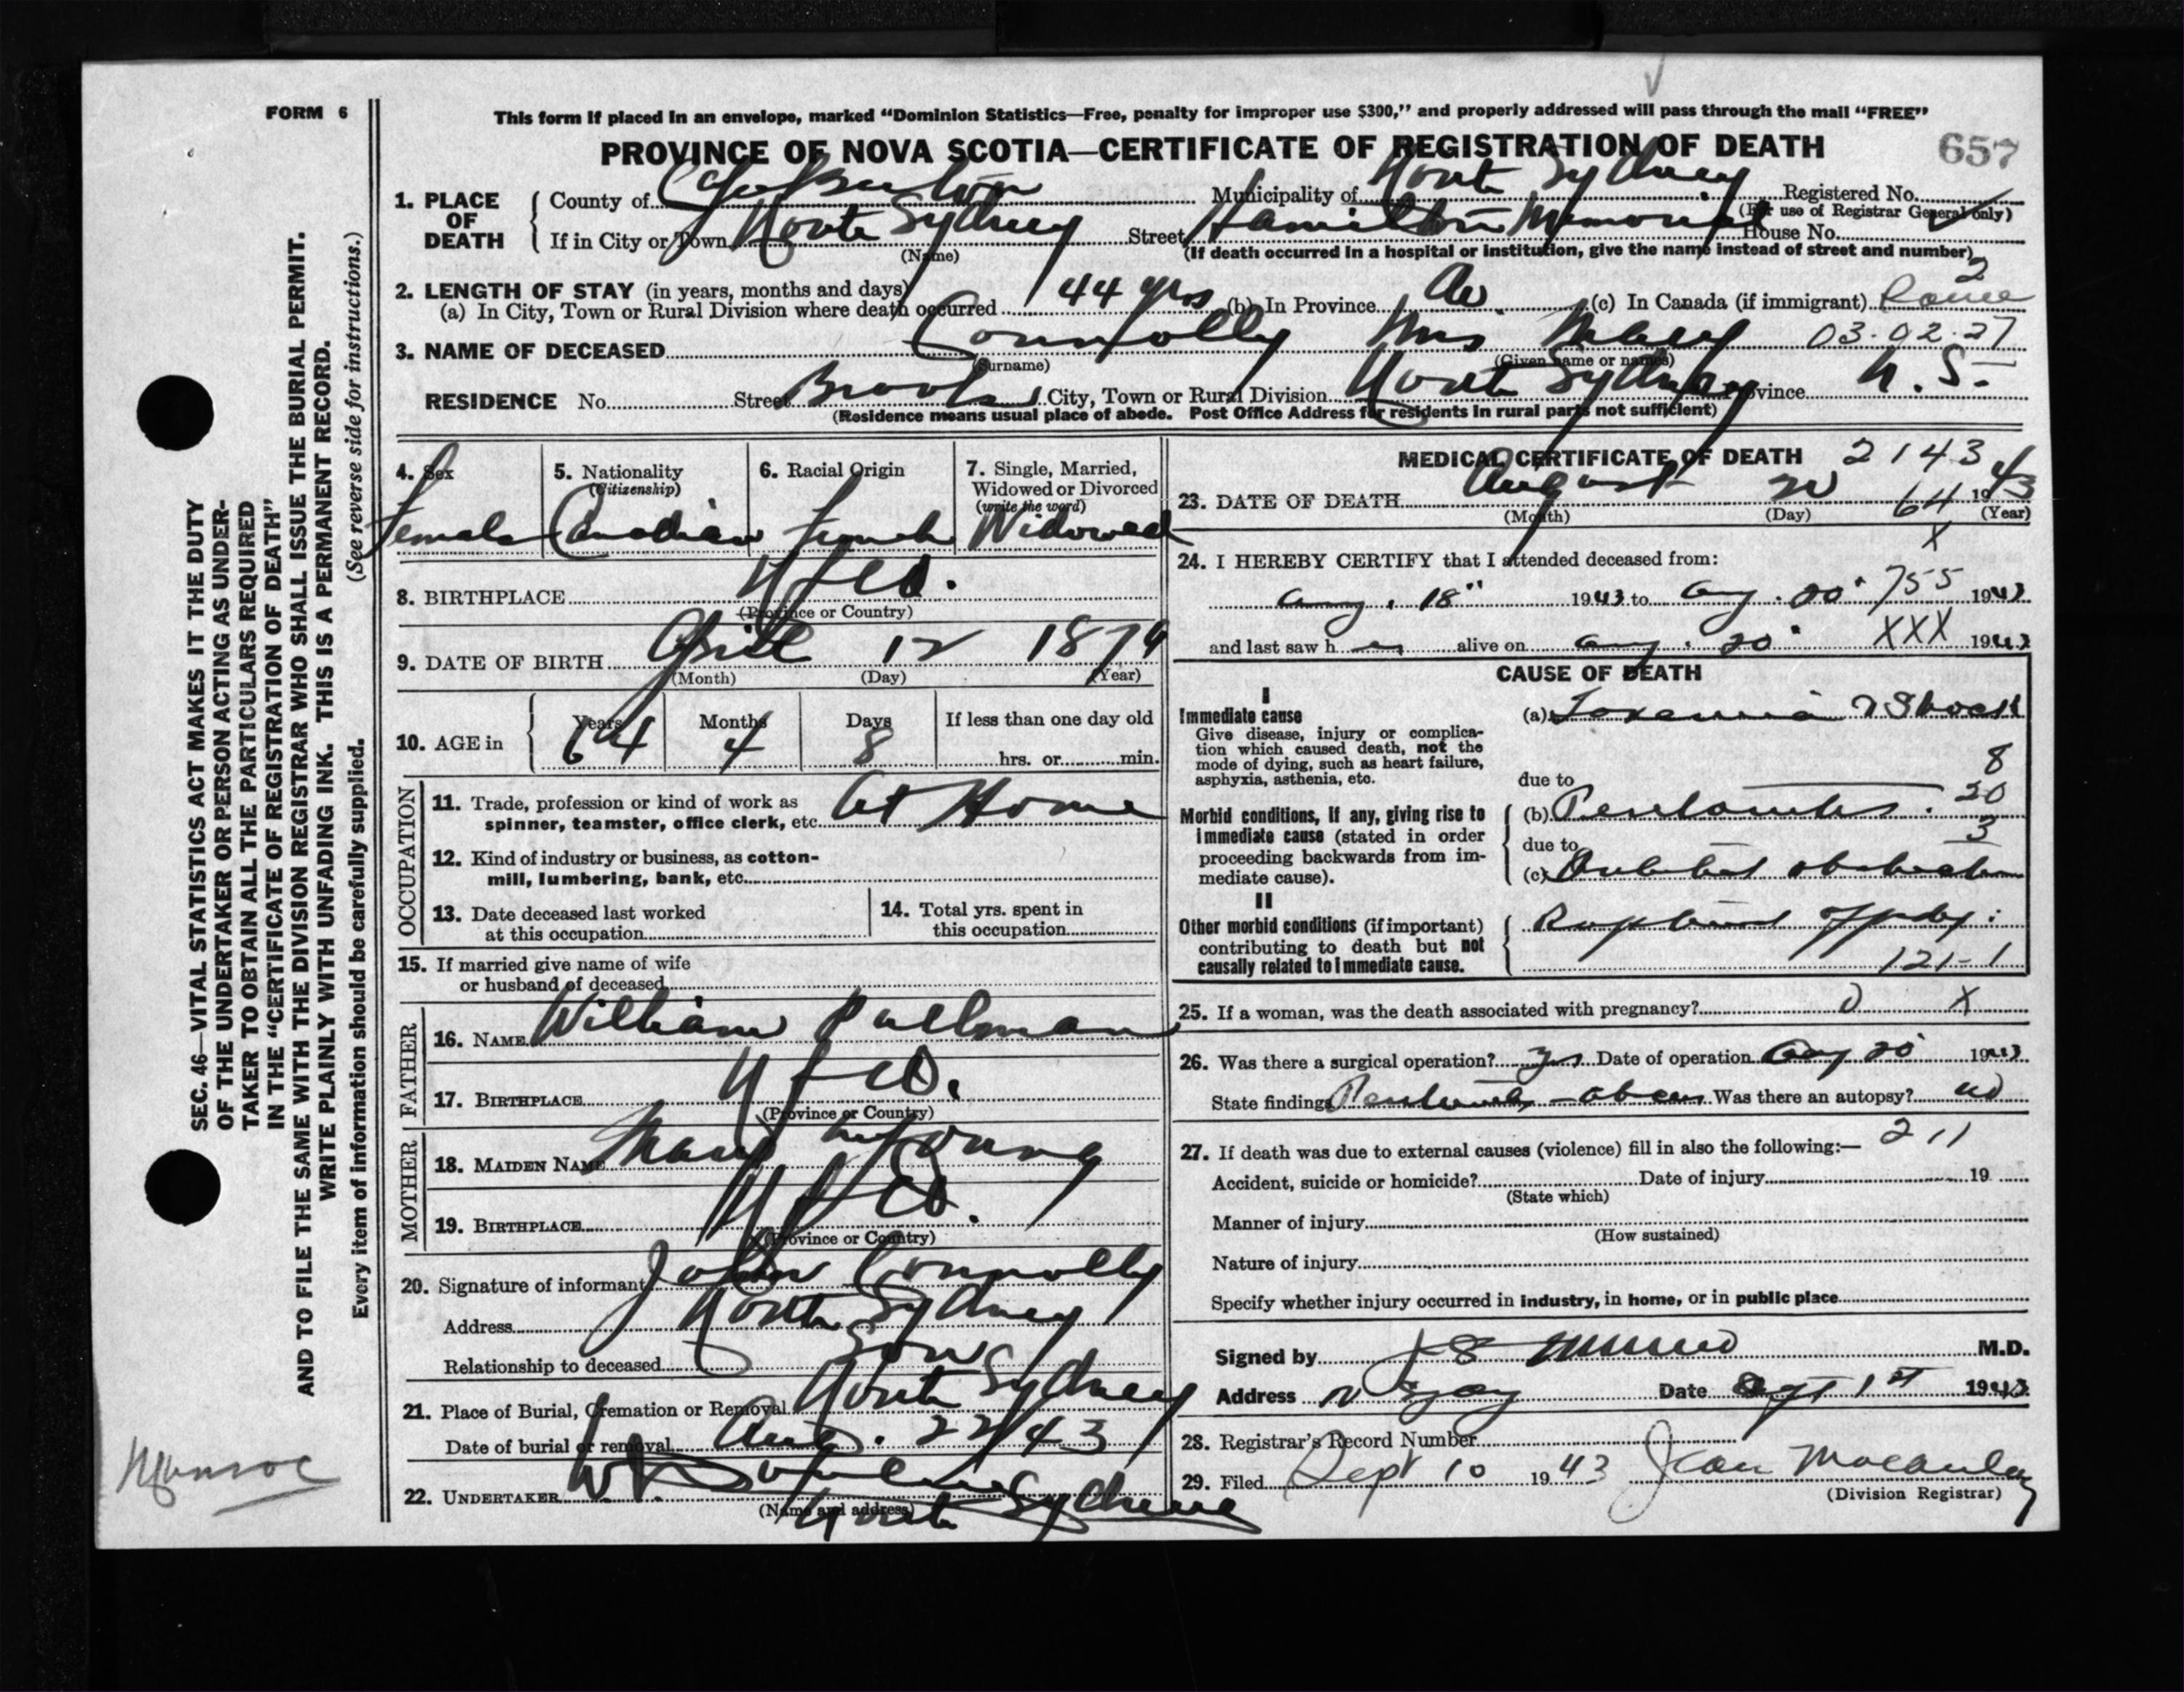 FORM 6
This form if placed in an envelope, marked “Dominion Statistics—Free, penalty for improper use $300,” and properly addressed will pass through the mail “FREE”
PROVINCE OF NOVA SCOTIA—CERTIFICATE OF REGISTRATION OF DEATH 657
1. PLACE OF DEATH
County of Cape Breton Municipality of North Sydney Registered No.
(For use of Registrar General only)
If in City or Town North Sydney Street Hamilton Memorial House No.
(Name) (If death occurred in a hospital or institution, give the name instead of street and number)
2. LENGTH OF STAY (in years, months and days) 2
(a) In City, Town or Rural Division where death occurred 44 yrs (b) In Province (c) In Canada (if immigrant)
3. NAME OF DECEASED Connolly Mrs Mary 03-02-27
(Surname) (Given name or names)
RESIDENCE No. Street City, Town or Rural Division North Sydney Province N.S.
(Residence means usual place of abode. Post Office Address for residents in rural parts not sufficient)
4. Sex
Female
5. Nationality
(Citizenship)
Canadian
6. Racial Origin
French
7. Single, Married,
Widowed or Divorced
(write the word)
Widowed
8. BIRTHPLACE Nfld.
(Province or Country)
9. DATE OF BIRTH April 12 1879
(Month) (Day) (Year)
10. AGE in
Years Months Days If less than one day old
64 4 8 hrs. or min.
OCCUPATION
11. Trade, profession or kind of work as
spinner, teamster, office clerk, etc. At Home
12. Kind of industry or business, as cotton-
mill, lumbering, bank, etc.
13. Date deceased last worked
at this occupation
14. Total yrs. spent in
this occupation
15. If married give name of wife
or husband of deceased
FATHER
16. NAME William Pullman
17. BIRTHPLACE Nfld.
(Province or Country)
MOTHER
18. MAIDEN NAME Mary Young
19. BIRTHPLACE Nfld.
(Province or Country)
20. Signature of informant John Connolly
Address North Sydney
Relationship to deceased Son
21. Place of Burial, Cremation or Removal North Sydney
Date of burial or removal Aug. 22/43
22. UNDERTAKER
(Name and address) North Sydney
MEDICAL CERTIFICATE OF DEATH 2143
23. DATE OF DEATH August 20 64 1943
(Month) (Day) (Year)
X
24. I HEREBY CERTIFY that I attended deceased from:
Aug. 18" 1943 to Aug. 20" 755 1943
and last saw her alive on Aug. 20" XXX 1943
CAUSE OF DEATH
I
Immediate cause
Give disease, injury or complica-
tion which caused death, not the
mode of dying, such as heart failure,
asphyxia, asthenia, etc.
(a) Toxemia & Shock
8
due to
20
Morbid conditions, if any, giving rise to
immediate cause (stated in order
proceeding backwards from im-
mediate cause).
(b) Peritonitis.
3
due to
(c) Intestinal obstruction
II
Other morbid conditions (if important)
contributing to death but not
causally related to immediate cause.
Ruptured
121-1
25. If a woman, was the death associated with pregnancy? 0 X
26. Was there a surgical operation? Yes Date of operation Aug 20 1943
State findings Peritonitis - abcess Was there an autopsy? no
27. If death was due to external causes (violence) fill in also the following:— 211
Accident, suicide or homicide? Date of injury 19
(State which)
Manner of injury
(How sustained)
Nature of injury
Specify whether injury occurred in industry, in home, or in public place
Signed by Munro M.D.
Address N Syd Date Sept 1st 1943
28. Registrar's Record Number
29. Filed Sept 10 1943 Jean Macaulay
(Division Registrar)
SEC. 46—VITAL STATISTICS ACT MAKES IT THE DUTY
OF THE UNDERTAKER OR PERSON ACTING AS UNDER-
TAKER TO OBTAIN ALL THE PARTICULARS REQUIRED
IN THE “CERTIFICATE OF REGISTRATION OF DEATH”
AND TO FILE THE SAME WITH THE DIVISION REGISTRAR WHO SHALL ISSUE THE BURIAL PERMIT.
WRITE PLAINLY WITH UNFADING INK. THIS IS A PERMANENT RECORD.
Every item of information should be carefully supplied. (See reverse side for instructions.)
Munroe